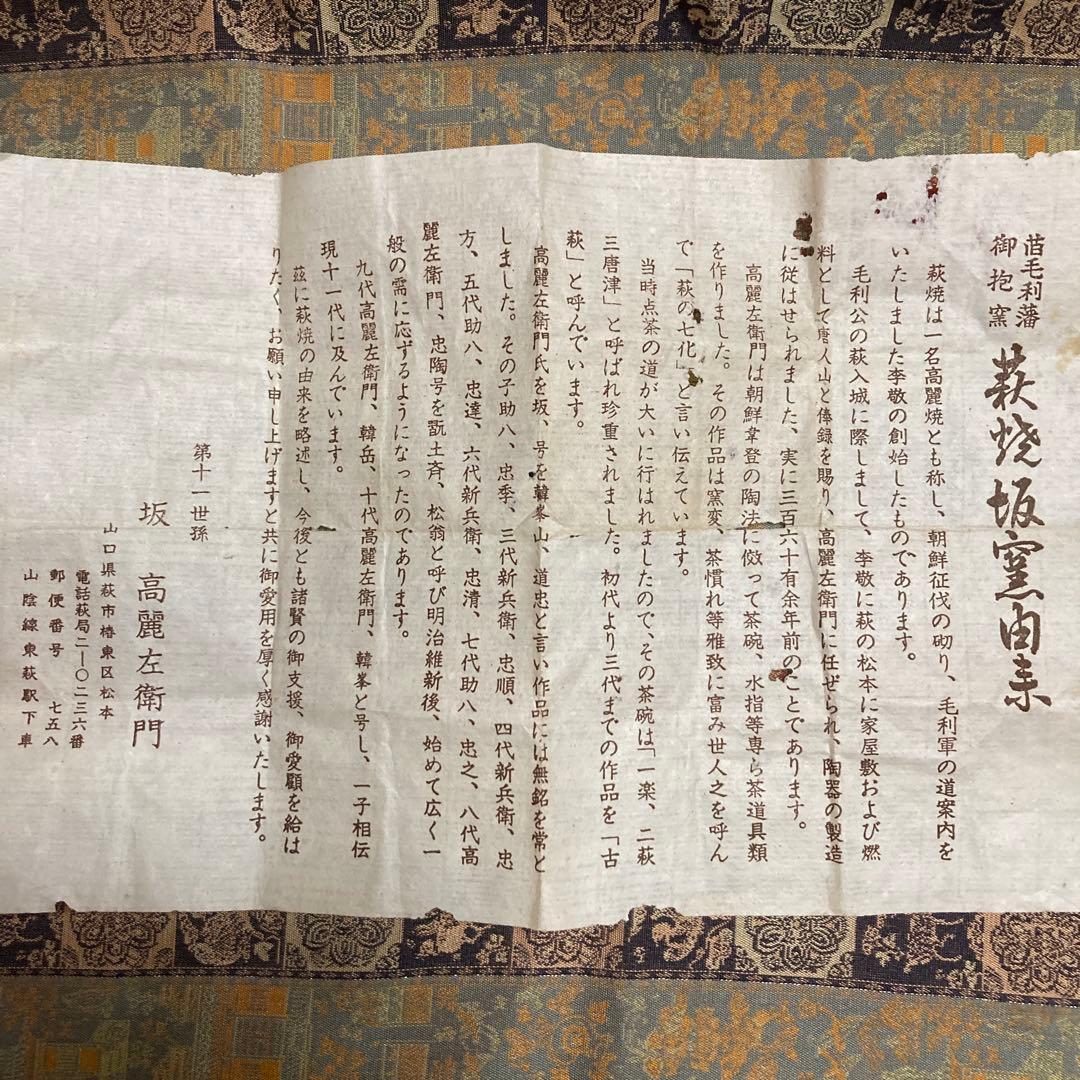 昔毛利藩
御抱窯
萩焼坂窯由来
萩焼は一名高麗焼とも称し、朝鮮征伐の砌り、毛利軍の道案内を
いたしました李敬の創始したものであります。
毛利公の萩入城に際しまして、李敬に萩の松本に家屋敷および燃
料として唐人山と俸録を賜り、高麗左衛門に任ぜられ、陶器の製造
に従はせられました、実に三百六十有余年前のことであります。
高麗左衛門は朝鮮韋登の陶法に倣って茶碗、水指等専ら茶道具類
を作りました。その作品は窯変、茶慣れ等雅致に富み世人之を呼ん
で「萩の七化」と言い伝えています。
当時点茶の道が大いに行はれましたので、その茶碗は「一楽、二萩
三唐津」と呼ばれ珍重されました。初代より三代までの作品を「古
萩」と呼んでいます。
高麗左衛門氏を坂、号を韓峯山、道忠と言い作品には無銘を常と
しました。その子助八、忠季、三代新兵衛、忠順、四代新兵衛、忠
方、五代助八、忠達、六代新兵衛、忠清、七代助八、忠之、八代高
麗左衛門、忠陶号を翫土斉、松翁と呼び明治維新後、始めて広く一
般の需に応ずるようになったのであります。
九代高麗左衛門、韓岳、十代高麗左衛門、韓峯と号し、一子相伝
現十一代に及んでいます。
茲に萩焼の由来を略述し、今後とも諸賢の御支援、御愛顧を給は
りたく、お願い申し上げますと共に御愛用を厚く感謝いたします。
第十一世孫
坂 高麗左衛門
山口県萩市椿東区松本
電話萩局二―〇二三六番
郵便番号 七五八
山陰線東萩駅下車